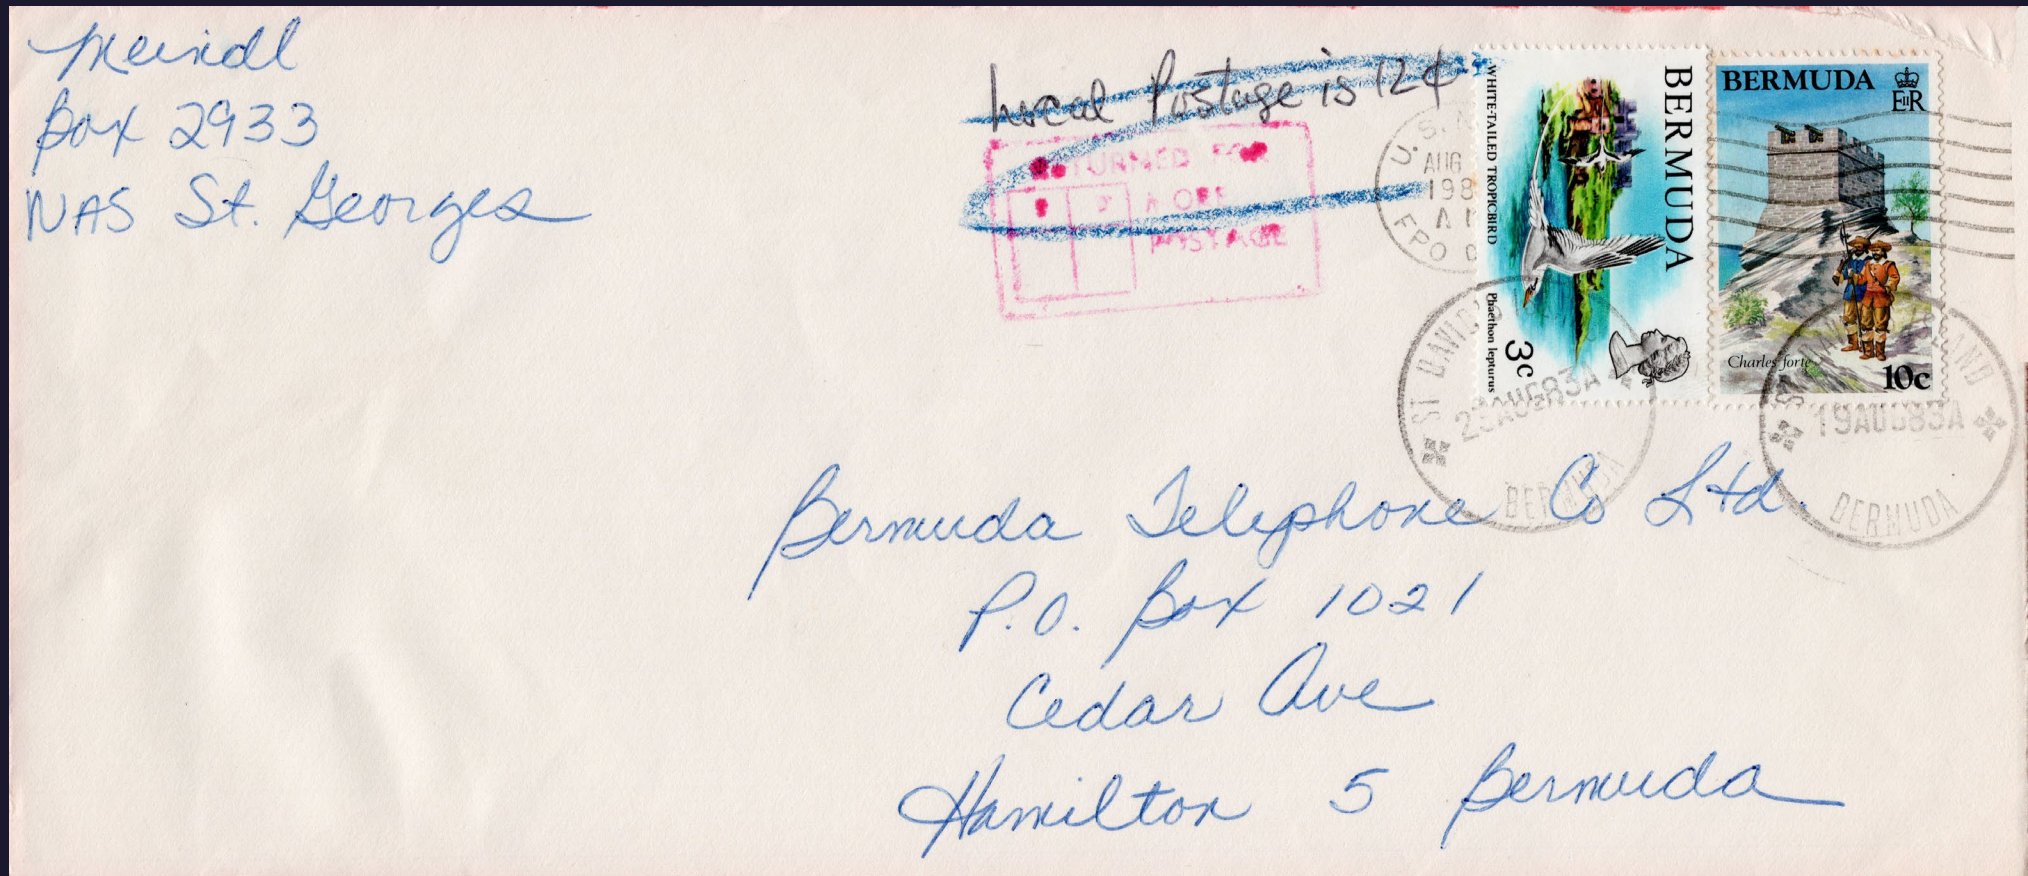 Meindl
Box 2933
NAS St. Georges
Local Postage is 12¢
RETURNED FOR
MORE
POSTAGE
U.S. N
AUG
198
FPO
WHITE-TAILED TROPICBIRD
Phaethon lepturus
BERMUDA
3c
BERMUDA
EIIR
Charles forte
10c
ST DAVID'S
23AUG83A
BERMUDA
ST DAVID'S ISLAND
19AUG83A
BERMUDA
Bermuda Telephone Co Ltd.
P.O. Box 1021
Cedar Ave
Hamilton 5 Bermuda